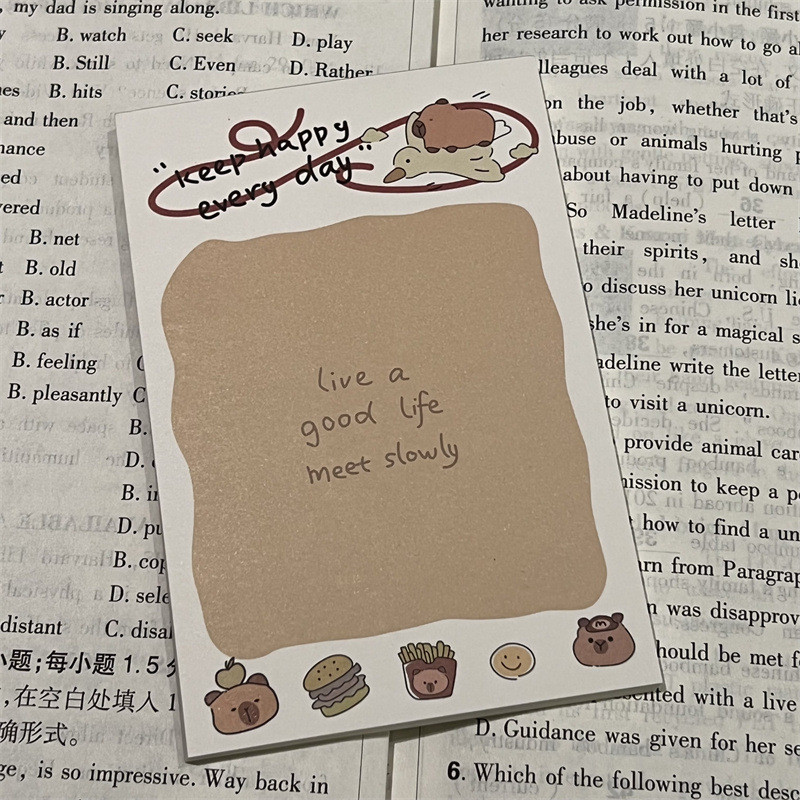 , my dad is singing along.
B. watch C. seek D. play
B. Still C. Even D. Rather
B. hits
and then
B. net
B. old
B. actor
B. as if
B. feeling
B. pleasantly C
B.
D.
B. in
D. pu
B. cop
D. sele
distant C. disa
小题;每小题 1.5 分
,在空白处填入 1
确形式。
ge, is so impressive. Way back in
"keep happy
every day"
live a
good life
meet slowly
wanting to ask permission in the first
her research to work out how to go al
lleagues deal with a lot of
on the job, whether that's
buse or animals hurting p
about having to put down
So Madeline's letter
their spirits, and sh
o discuss her unicorn lic
she's in for a magical s
adeline write the letter
to visit a unicorn.
provide animal car
mission to keep a p
how to find a un
arn from Paragrap
n was disapprov
hould be met f
sented with a live
D. Guidance was given for her se
6. Which of the following best desc